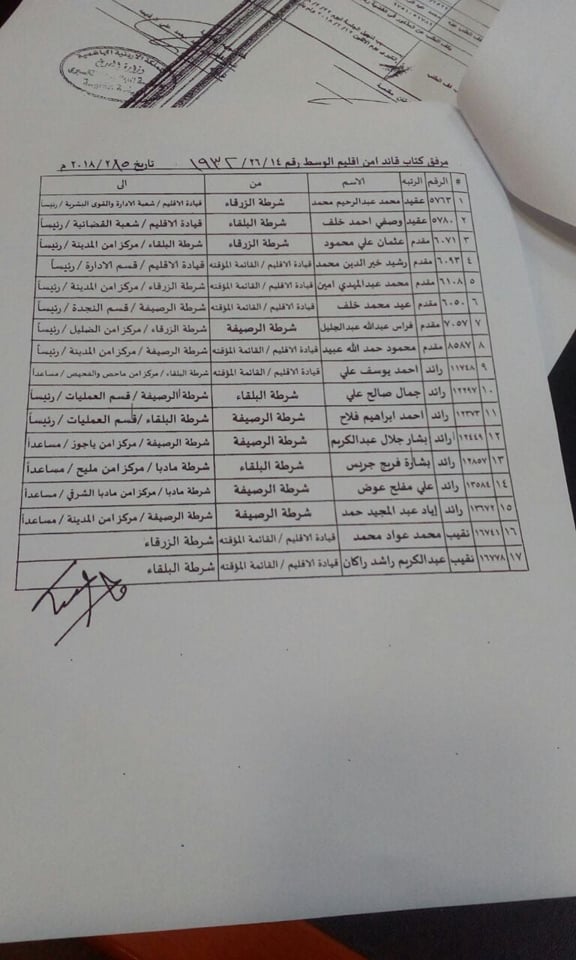 المملكة الاردنية الهاشمية
وزارة
مرفق كتاب قائد امن اقليم الوسط رقم ٢٦/١٤/ ١٩٣٢ تاريخ ٢٨/ ٥ /٢٠١٨ م
# الرقم الرتبه الاســم من الى
١ ٥٧٦٣ عقيد محمد عبدالرحيم محمد شرطة الزرقاء قيادة الاقليم / شعبة الادارة والقوى البشرية / رئيساً
٢ ٥٧٨٠ عقيد وصفي احمد خلف شرطة البلقاء قيادة الاقليم / شعبة القضائية / رئيساً
٣ ٦٠٧١ مقدم عثمان علي محمود شرطة الزرقاء شرطة البلقاء / مركز امن المدينة / رئيساً
٤ ٦٠٩٣ مقدم رشيد خير الدين محمد قيادة الاقليم / القائمة المؤقته قيادة الاقليم / قسم الادارة / رئيساً
٥ ٦١٠٨ مقدم محمد عبدالمهدي امين قيادة الاقليم / القائمة المؤقته شرطة الزرقاء / مركز امن المدينة / رئيساً
٦ ٦٠٥٠ مقدم عيد محمد خلف قيادة الاقليم / القائمة المؤقته شرطة الرصيفة / قسم النجدة / رئيساً
٧ ٧٠٥٧ مقدم فراس عبدالله عبدالجليل شرطة الرصيفة شرطة الزرقاء / مركز امن الضليل / رئيساً
٨ ٨٥٨٧ مقدم محمود حمد الله عبيد قيادة الاقليم / القائمة المؤقته شرطة الرصيفة / مركز امن المدينة / رئيساً
٩ ١١٧٤٨ رائد احمد يوسف علي قيادة الاقليم / القائمة المؤقته شرطة البلقاء / مركز امن ماحص والفحيص / مساعداً
١٠ ١٢٢٩٧ رائد جمال صالح علي شرطة البلقاء شرطة الرصيفة / قسم العمليات / رئيساً
١١ ١٢٣٧٣ رائد احمد ابراهيم فلاح شرطة الرصيفة شرطة البلقاء / قسم العمليات / رئيساً
١٢ ١٢٤٤٩ رائد بشار جلال عبدالكريم شرطة الرصيفة شرطة الرصيفة / مركز امن ياجوز / مساعداً
١٣ ١٢٨٥٧ رائد بشارة فريج جريس شرطة البلقاء شرطة مادبا / مركز امن مليح / مساعداً
١٤ ١٣٥٨٤ رائد علي مفلح عوض شرطة الرصيفة شرطة مادبا / مركز امن مادبا الشرقي / مساعداً
١٥ ١٣٦٧٢ رائد إياد عبد المجيد حمد شرطة الرصيفة شرطة الرصيفة / مركز امن المدينة / مساعداً
١٦ ١٦٧٤١ نقيب محمد عواد محمد قيادة الاقليم / القائمة المؤقته شرطة الزرقاء
١٧ ١٦٧٧٨ نقيب عبدالكريم راشد راكان قيادة الاقليم / القائمة المؤقته شرطة البلقاء